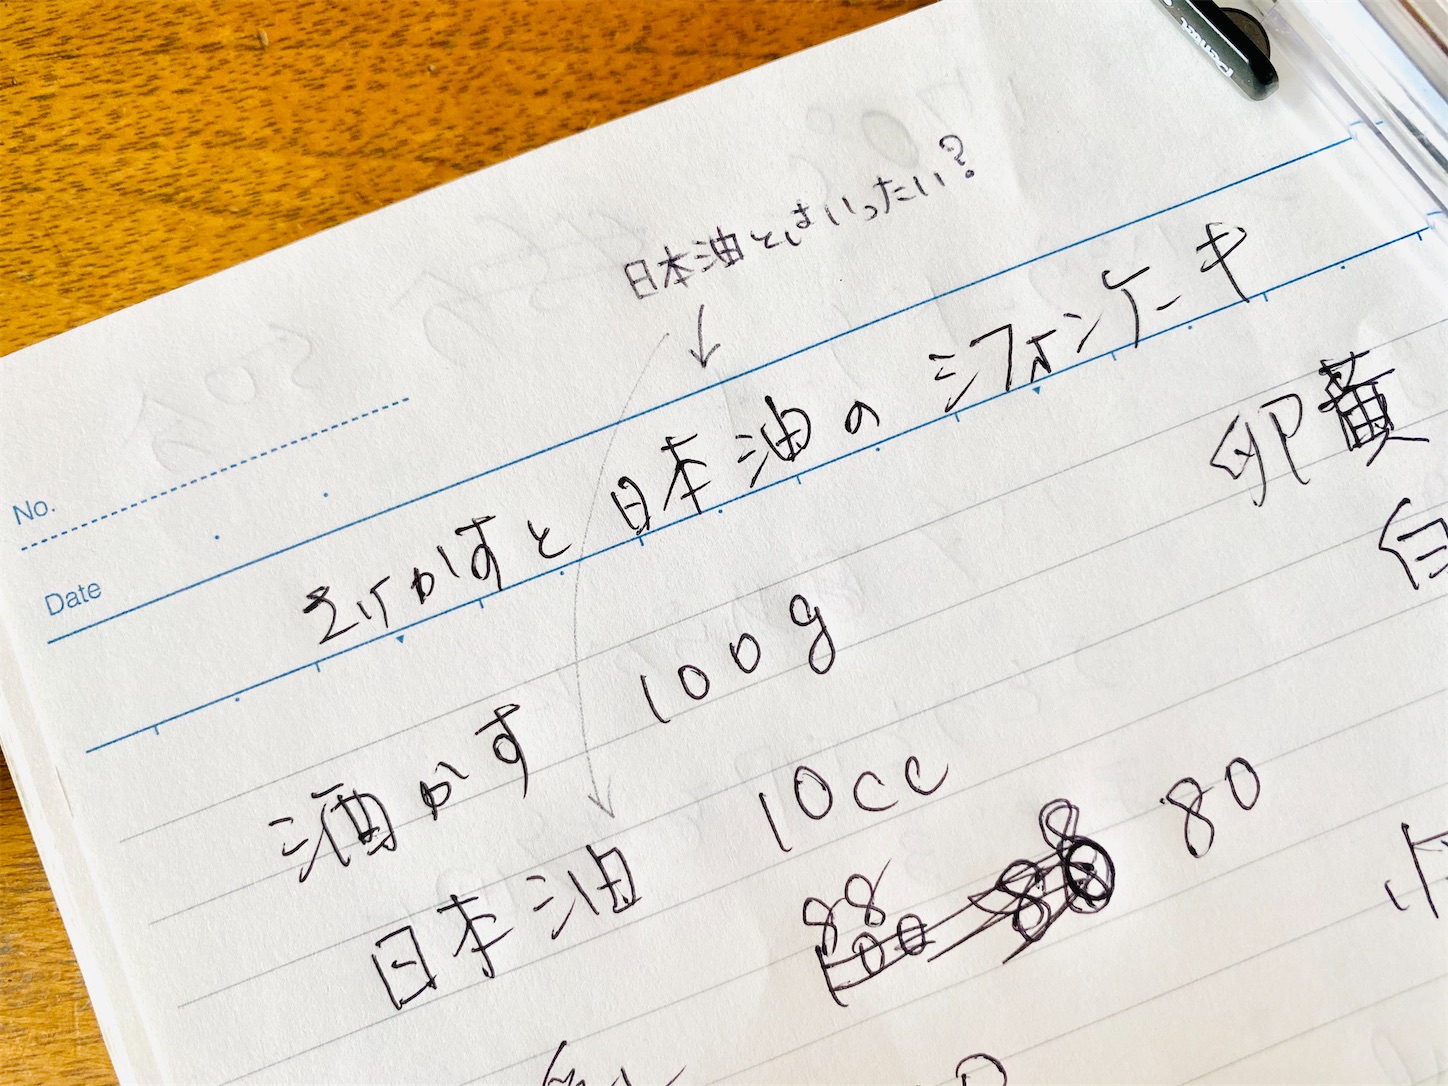 Pentel
日本油とはいったい?
No.
Date
さけかすと日本油のシフォンケーキ
酒かす 100g
卵黄
日本油 10cc
白
88 80